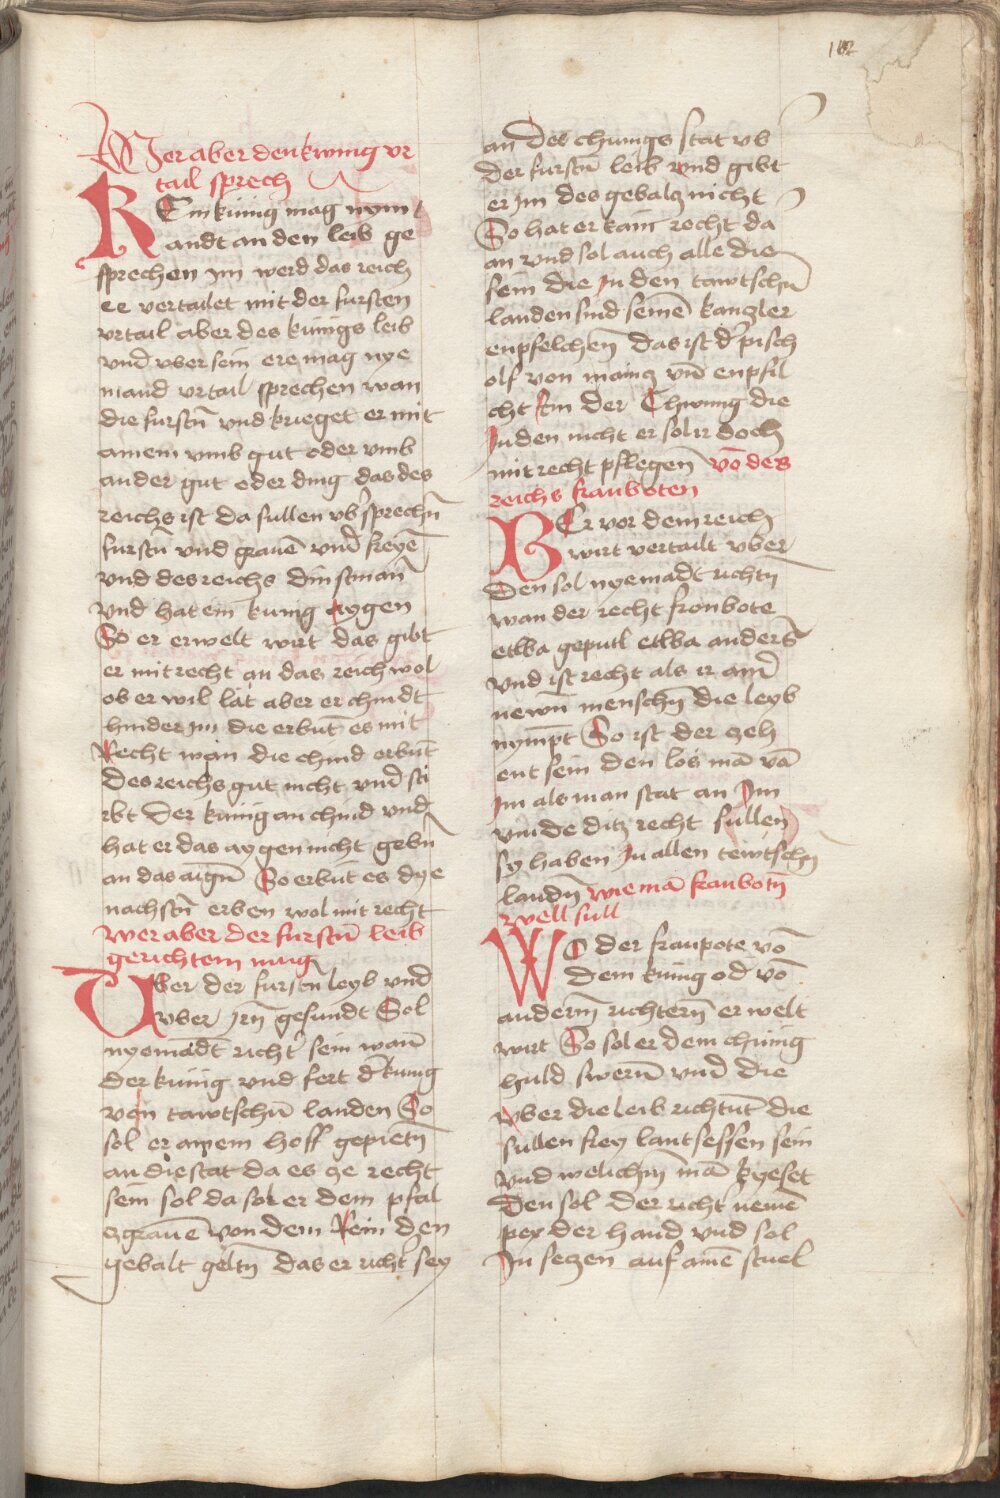 182
Wer aber den kunig vr
tail sprech
KEin künig mag nym
andt an den leib ge
sprechen im werd das reich
ee vertailet mit der fursten
vrtail aber des künigs leib
vnd vber sein ere mag nye
mand vrtail sprechen wan
die furstn̄ vnd krieget er mit
ainem vmb gut oder vmb
ander gut oder ding das des
reichs ist da sullen vb̄ sprechn̄
furstn̄ vnd grauē vnd freyē
vnd des reichs dinstman̄
vnd hat ein kunig aygen
So er erwelt wirt das gibt
er mit recht an das reich wol
ob er wil lät aber er chindt
hinder im die erbn̄t es mit
Recht wan die chind erbn̄t
des reichs gut nicht vnd sti
rbt der künig an chind vnd
hat er das aygen nicht gebn̄
an das aign̄ So erbn̄t es dye
nachstn̄ erben wol mit recht
wer aber der furstn̄ leib
gerichten mug
Vber der fursten leyb vnd
vber irn̄ gesundt Sol
nyemādt richtn̄ sein wan̄
der künig vnd fert d̄ kunig
von tawtschn̄ landen So
sol er ainem hoff gepietn̄
an die stat da es ze recht
sein sol da sol er dem pfal
czgrauē von dem Rein den
gebalt geltn̄ das er richt sey
an des chunigs stat vb
der furstn̄ leib vnd gibt
er im des gebalcz nicht
So hat er kain recht da
an vnd sol auch alle die
sein die in den tawtschn̄
landen sind seinē kanczler
enpfelchen das ist d̄ pisch
olf von maincz vnd enpfil
cht Im der Chunig die
Juden nicht er sol ir doch
mit recht pflegen vō des
reichs fronboten
BEr vor dem reich
wirt vertailt vber
den sol nyemādt richtn̄
wan der recht fronbote
etwa geputl etwa anders
vnd ist recht als ir ain̄
newn̄ menschn̄ die leyb
nympt So ist der zeh
ent sein den los mā vō
im als man stat an Im
vinde ditz recht sullen
sy haben In allen tewtschn̄
landn̄ wie mā fronbotn̄
well sull
WO der fronpote vō
dem kunig od vō
andern̄ richtern̄ erwelt
wirt So sol er dem chunig
huld swern̄ vnd die
vber die leib richtn̄t die
sullen frey lantsessen sein
vnd welichn̄ mā kyeset
den sol der richt nemē
pey der hand vnd sol
In seczen auf ainē stuel